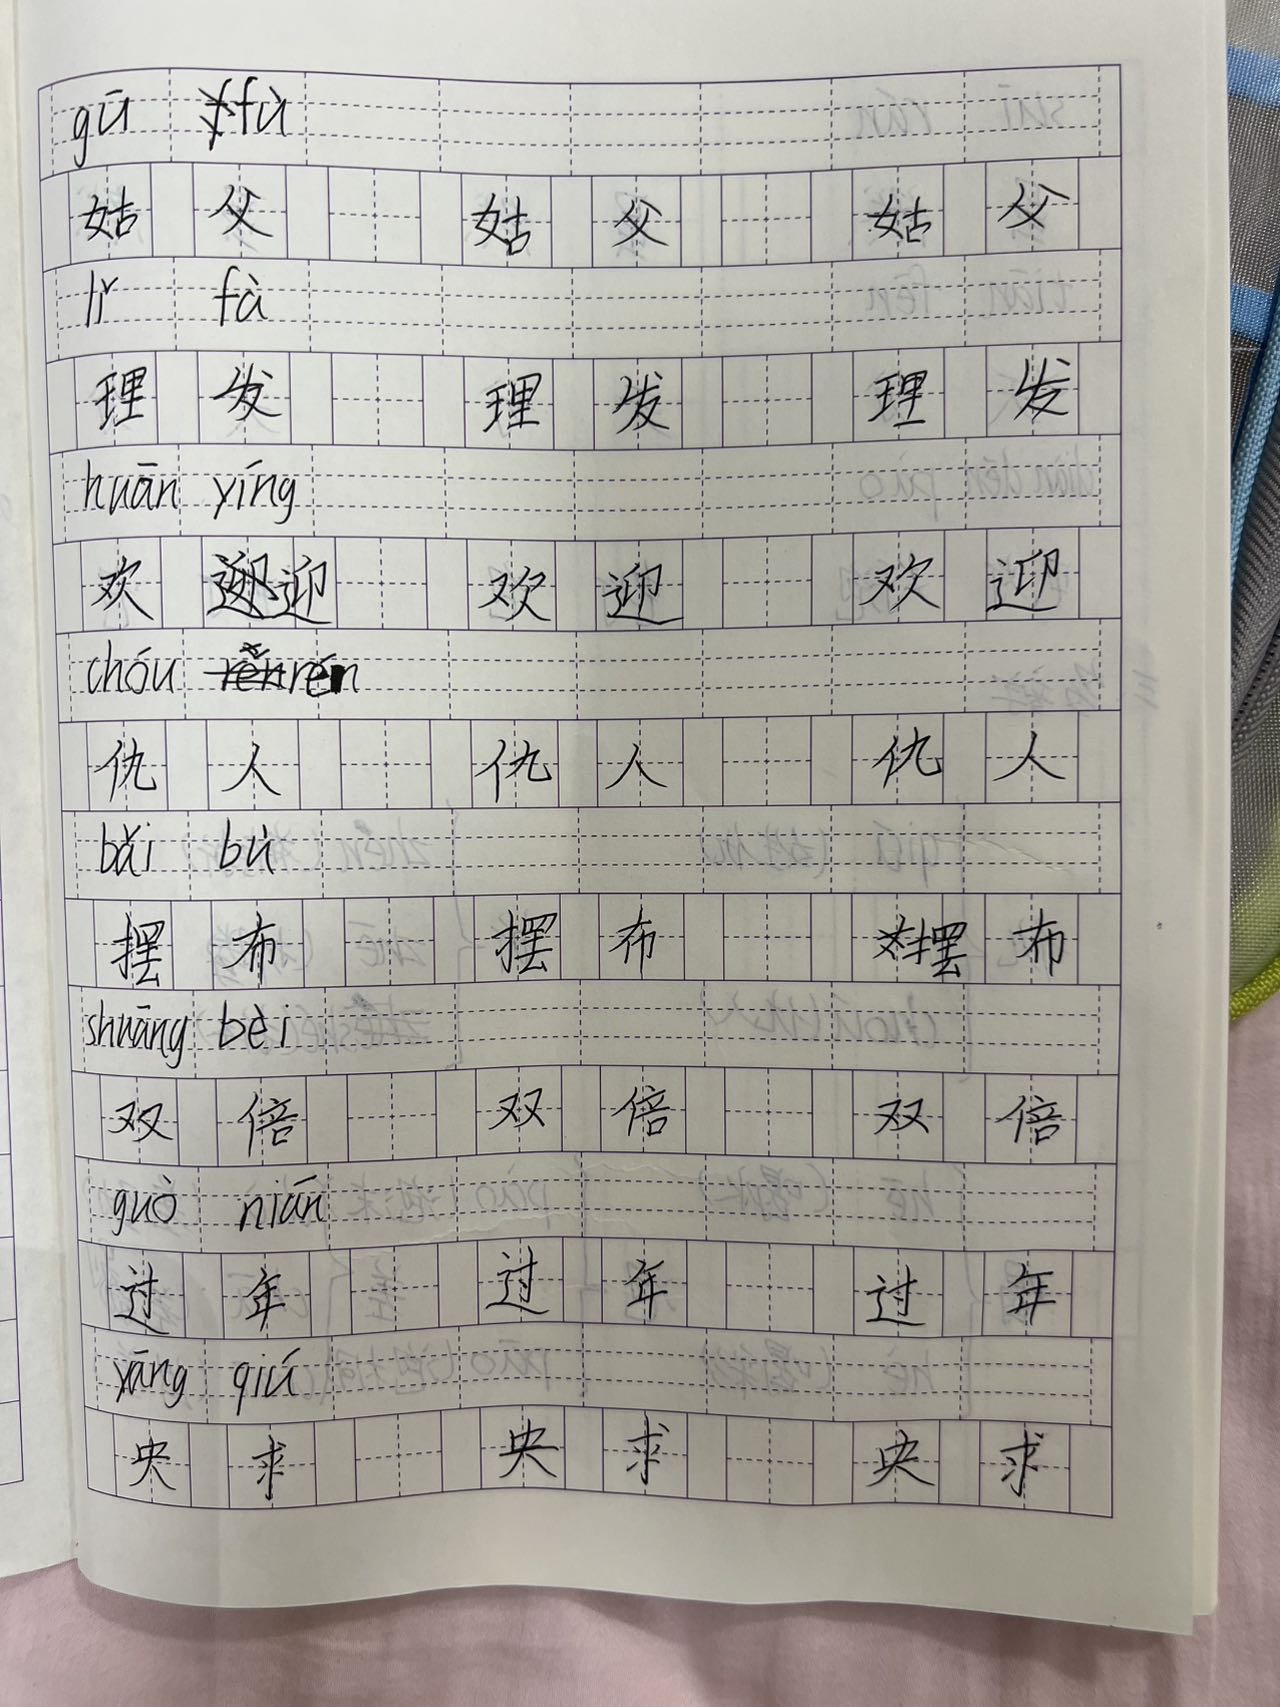 gū fù
姑父 姑父 姑父
lǐ fà
理发 理发 理发
huān yíng
欢迎 欢迎 欢迎
chóu rén
仇人 仇人 仇人
bǎi bù
摆布 摆布 摆布
shuāng bèi
双倍 双倍 双倍
guò nián
过年 过年 过年
yāng qiú
央求 央求 央求